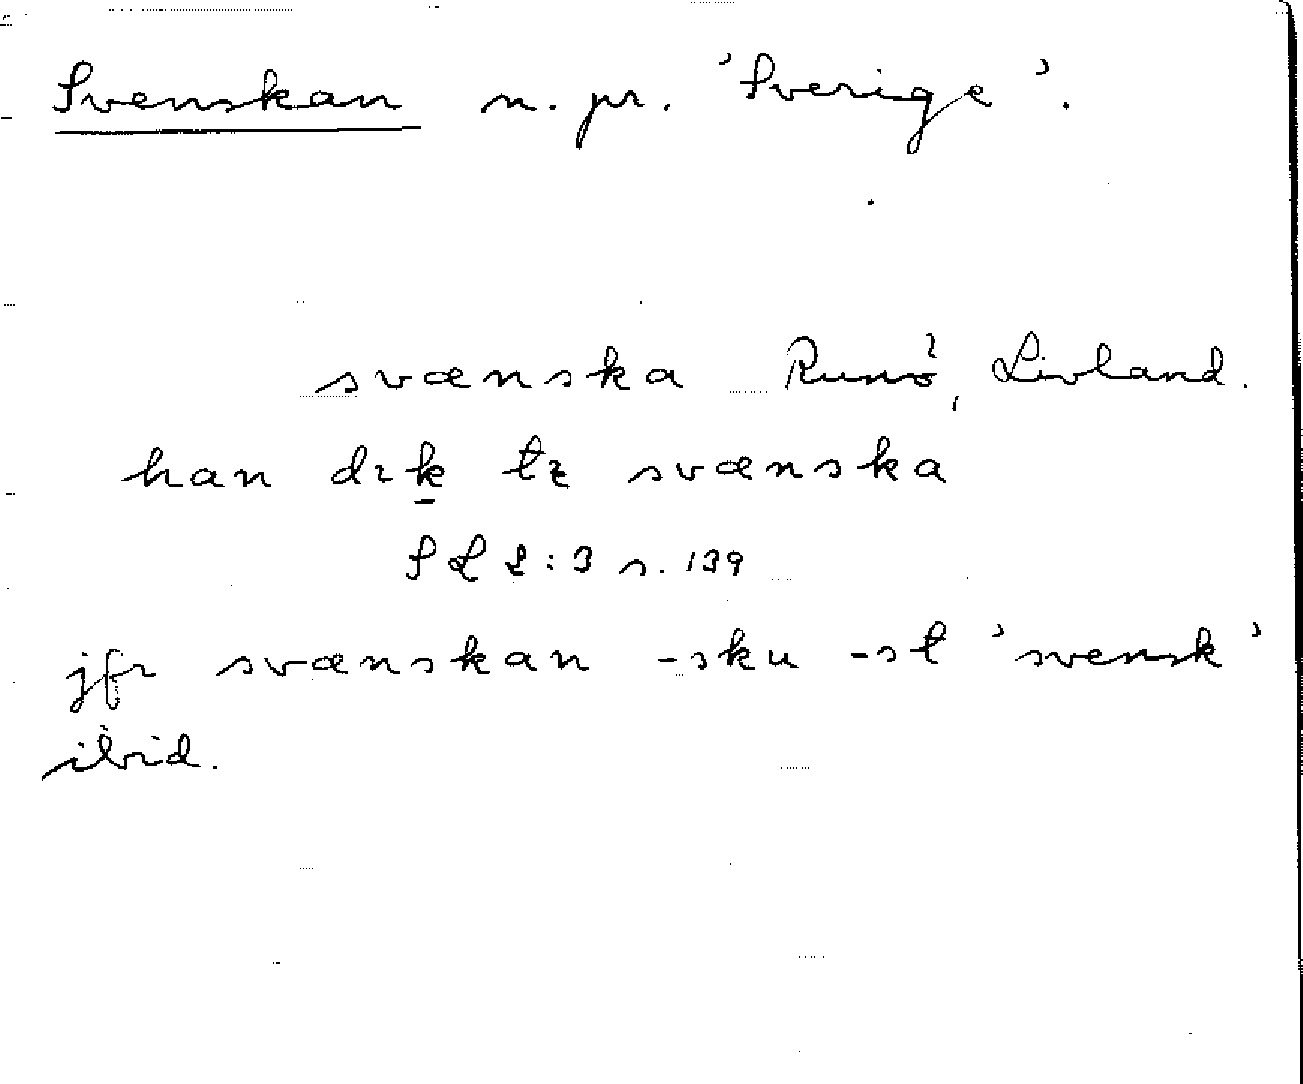 Svenskan n. pr. 'Sverige'.
svænska Runö, Livland.
han drk tr svænska
SL 2:3 s. 139
jfr svænskan -sku -st 'svensk'
ibid.